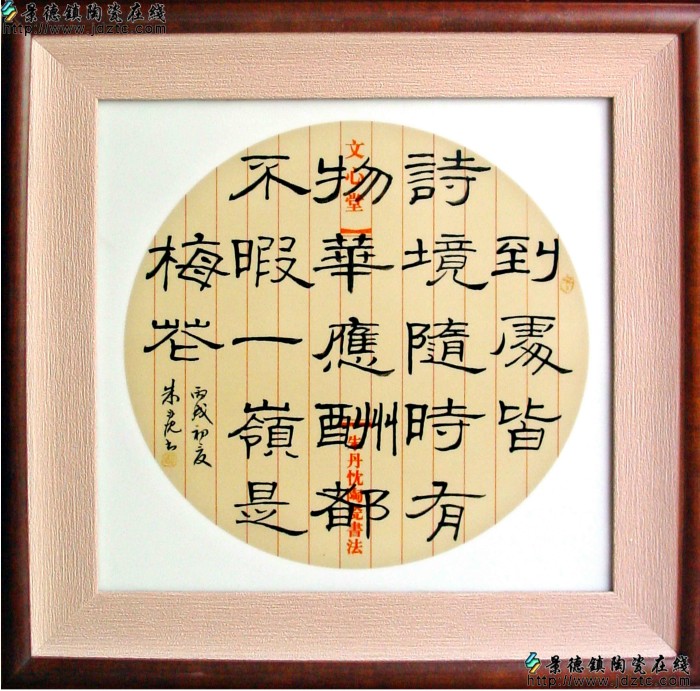 景德镇陶瓷在线
http://www.jdztc.com
到處皆
詩境隨時有
物華應酬都
不暇一嶺是
梅花
丙戌初夏
文心堂【
朱丹忱陶瓷書法
景德镇陶瓷在线
http://www.jdztc.com